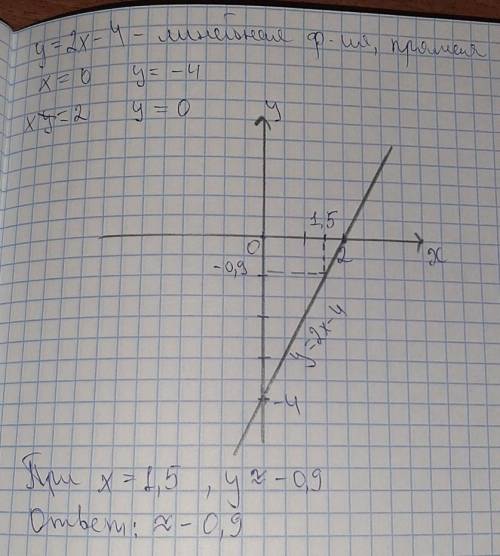 y=2x-4 - линейная ф-ия, прямая
x=0 y=-4
x=2 y=0
y
1,5
0
2
x
-0,9
y=2x-4
-4
При x=1,5, y≈-0,9
Ответ: ≈-0,9